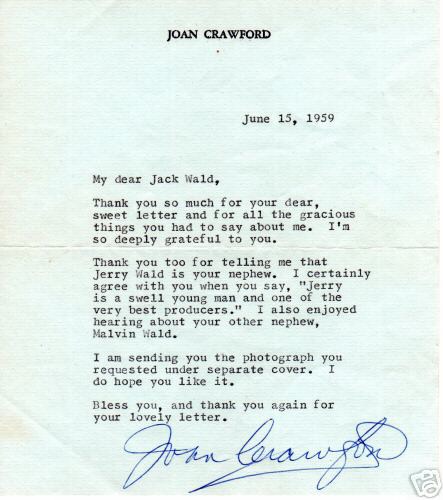 JOAN CRAWFORD
June 15, 1959
My dear Jack Wald,
Thank you so much for your dear,
sweet letter and for all the gracious
things you had to say about me. I'm
so deeply grateful to you.
Thank you too for telling me that
Jerry Wald is your nephew. I certainly
agree with you when you say, "Jerry
is a swell young man and one of the
very best producers." I also enjoyed
hearing about your other nephew,
Malvin Wald.
I am sending you the photograph you
requested under separate cover. I
do hope you like it.
Bless you, and thank you again for
your lovely letter.
Joan Crawford